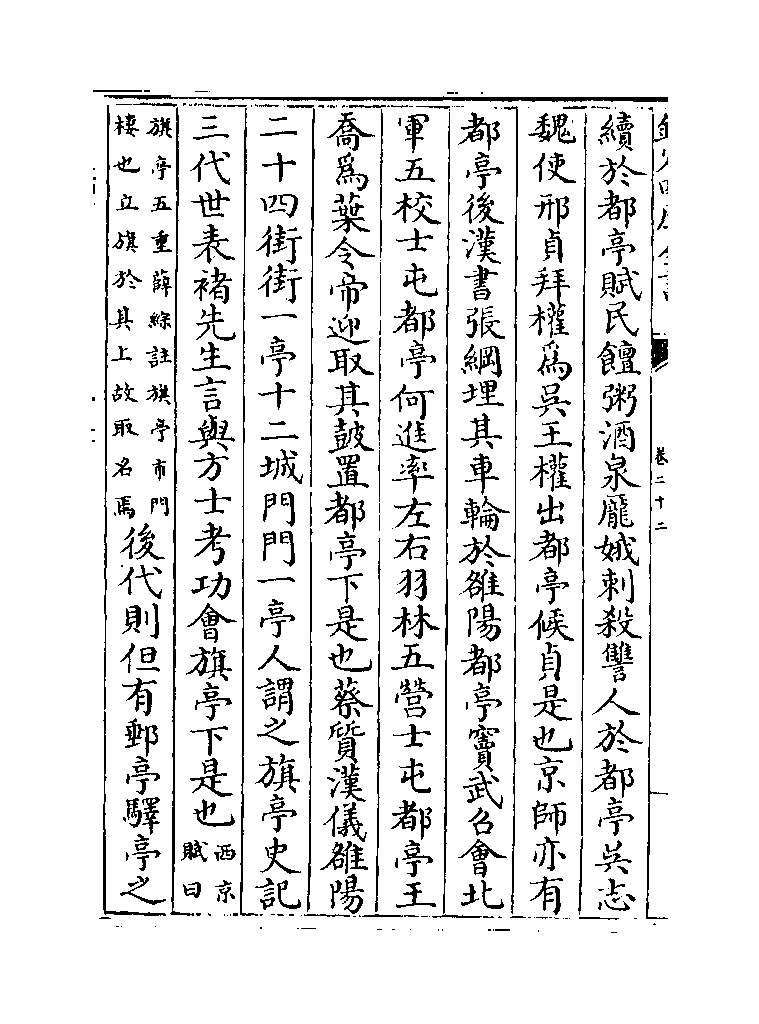 卷二十二
續於都亭賦民饘粥酒泉龎娥刺殺讐人於都亭吳志
魏使邢貞拜權爲吳王權出都亭候貞是也京師亦有
都亭後漢書張綱埋其車輪於雒陽都亭竇武召會北
軍五校士屯都亭何進率左右羽林五營士屯都亭王
喬爲葉令帝迎取其鼓置都亭下是也蔡質漢儀雒陽
二十四街街一亭十二城門門一亭人謂之旗亭史記
三代世表褚先生言與方士考功會旗亭下是也
西京
賦曰
旗亭五重薛綜註旗亭市門
樓也立旗於其上故取名焉
後代則但有郵亭驛亭之